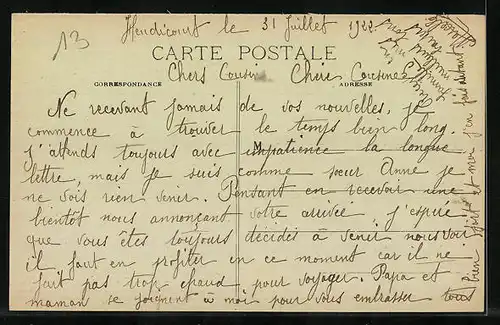 13
Heudicourt le 31 Juillet 1922
CARTE POSTALE
CORRESPONDANCE
ADRESSE
Chers Cousin Chère Cousine
Ne recevant jamais de vos nouvelles, je
commence à trouver le temps bien long.
j'attends toujours avec impatience la longue
M
lettre, mais je suis comme sœur Anne je
ne vois rien venir. Pensant en recevoir une
bientôt nous annonçant votre arrivée, j'espère
que vous êtes toujours décidés à venir nous voir
il faut en profiter en ce moment car il ne
fait pas trop chaud pour voyager. Papa et
maman se joignent à moi pour vous embrasser tous
bien fort et moi j'en fais autant